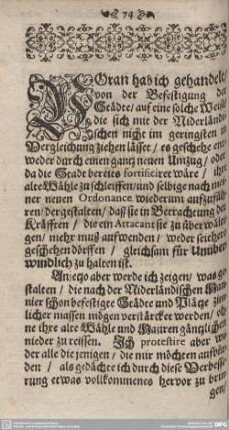 74
VOran hab ich gehandelt/
von der Befestigung der
Städte/ auf eine solche Weise
die sich mit der Niderländi-
schen nicht im geringsten in
Vergleichung ziehen lässet/ es geschehe ent-
weder durch einen gantz neuen Umzug/ oder
da die Stadt bereits fortificiret wäre/ ihre
alte Wähle zu schleiffen/und selbige nach mei-
ner neuen Ordonance wiederum aufzufüh-
ren/ dergestalten/ daß sie in Betrachtung der
Kräfften/ die ein Attacant sie zu überwälti-
gen/ mehr muß aufwenden/ weder seithero
geschehen dörffen/ gleichsam für Unüber-
windlich zu halten ist.
Anjetzo aber werde ich zeigen/ was ge-
stalten/ die nach der Niderländischen Ma-
nier schon befestigte Städte und Plätze
licher massen mögen verstärcket werden/ oh-
ne ihre alte Wähle und Mauren gäntzlichen
nieder zu reissen. Ich protestire aber wi-
der alle die jenigen/ die mir möchten aufbür-
den/ als gedächte ich durch diese Verbesse-
rung etwas vollkommenes hervor zu brin-
gen/